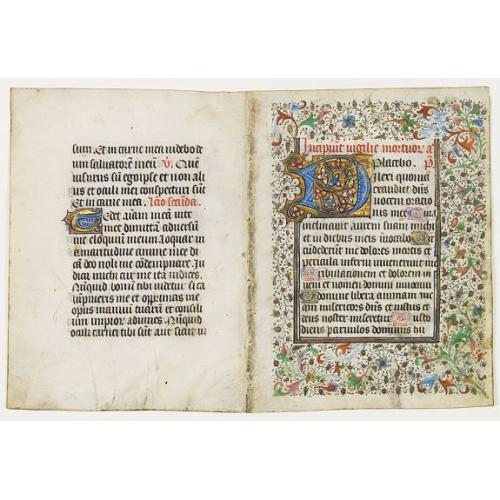 sum. Et in carne mea videbo de
um salvatorē meū V. Quē
visurus sū ego ipse et non ali
us et oculi mei conspecturi sūt
Et in carne mea. Lc̄o secūda.
Tedet aīam meā vite
mee dimittā adversū
me eloquiū meum loquar in
amaritudine anime mee di
cā deo noli me cōdempnare. In
dica michi cur me ita iudices.
Nūquid bonū tibi videtur si ca
lūpnieris me et opprimas me
opus manuū tuarū et consili
um impiorū adiuves. Nūquid
oculi carnei tibi sūt aut sicut vi
Incipiūt vigilie mortuor a
Placebo. P.
Dilexi quoniā
exaudiet dn̄s
vocem oratio
nis mee Quia
inclinavit aurem suam michi
et in diebus meis invocabo Cir
cūdederūt me dolores mortis et
pericula inferni invenerunt me
Tribulationem et dolorem in
veni et nomen domini invocavi
O domine libera animam me
am misericors dn̄s et iustus et
deus noster miseretur Custo
diens parvulos dominus hu